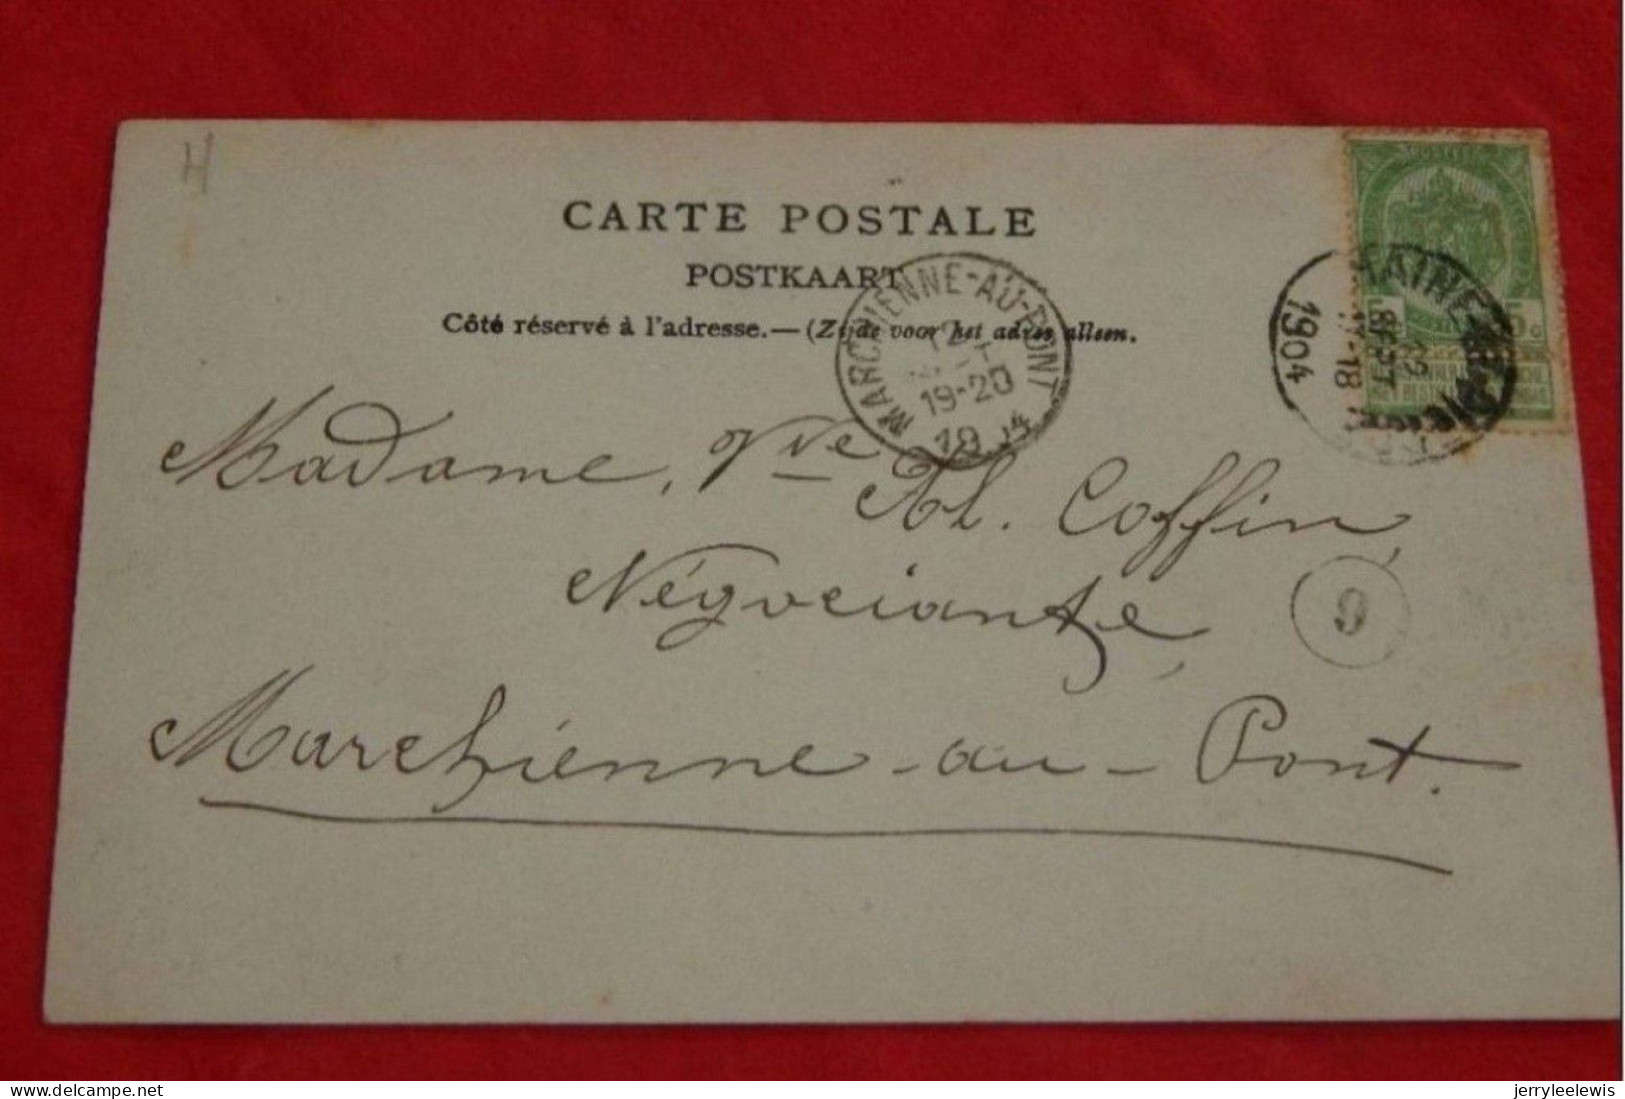 H
CARTE POSTALE
POSTKAART
Côté réservé à l'adresse.—(Zijde voor het adres alleen.
MARCHIENNE-AU-PONT
19-20
5c 5c
HAINE-ST-PIERRE
SEPT
17-18
1904
Madame, Vve Al. Coffin,
Négociante,
9
Marchienne-au-Pont.
www.delcampe.net
jerryleelewis